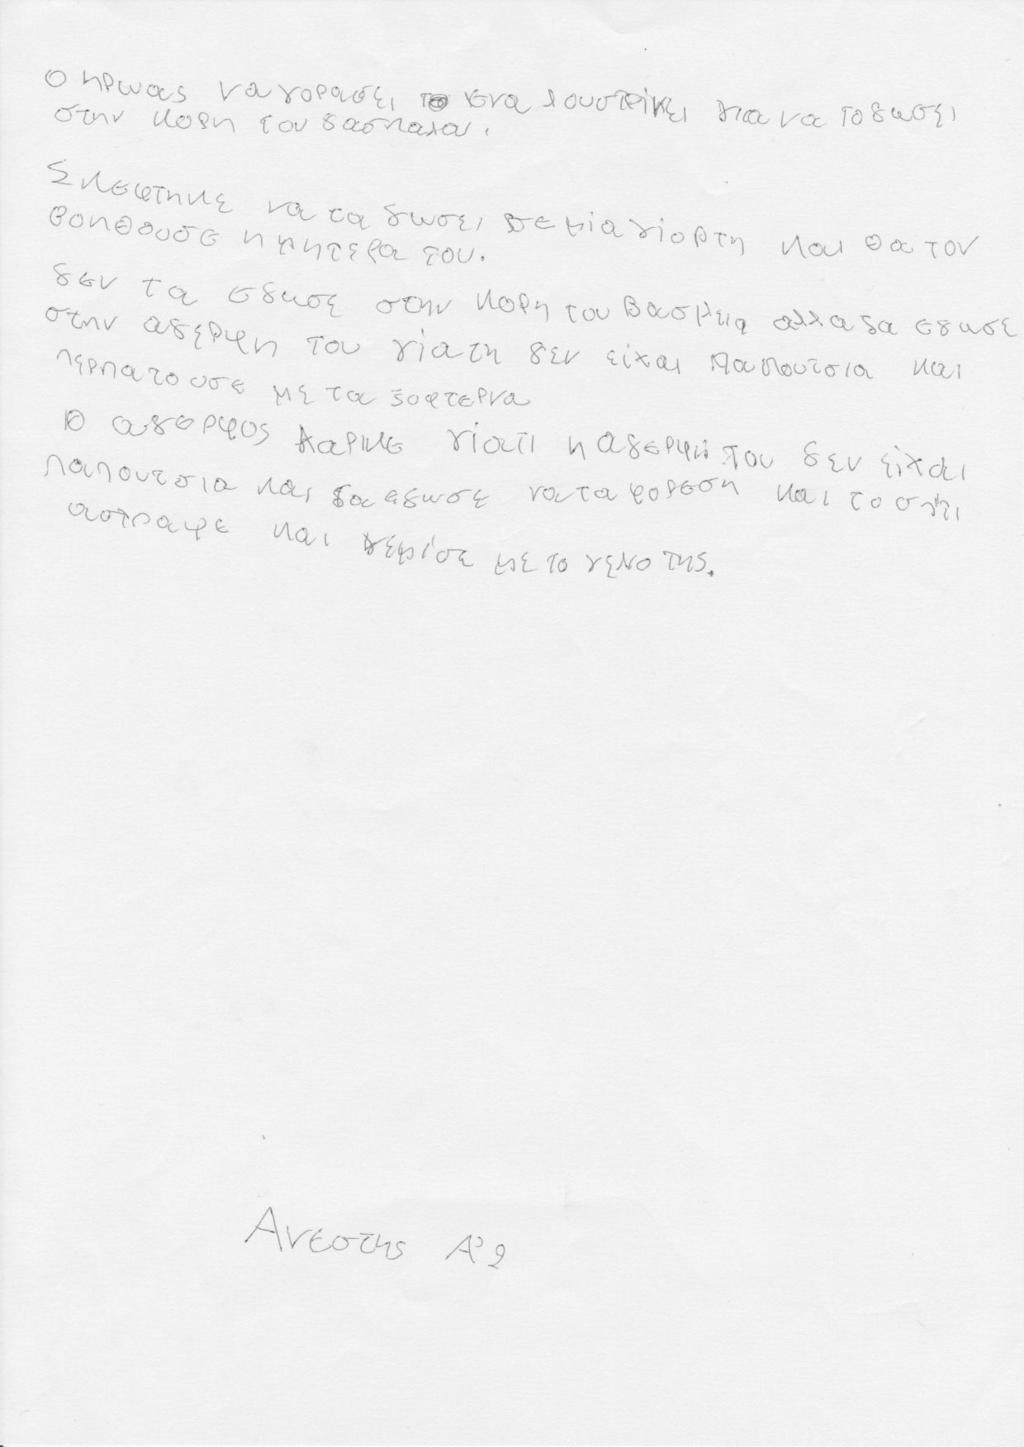 Ο ηρωας να γορασει ενα λουστρινι για να το δωσει
στην κορη του δασκαλα.
Σκεφτηκε να τα δωσει σε μία γίορτη και θα τον
βοηθουσε η μητερα του.
δεν τα εδωσε στην κορη του Βασιλεια αλλα δα εδωσε
στην αδερφη του γίατη δεν είχαι παπουτσια και
περπατουσε με τα ξοφτερνα
Ο αδερφος χαρικε γίατι η αδερφη του δεν είχαι
παπουτσια και δα εδωσε να τα φορεση και το σπιτι
αστραψε και γεμίσε με το γελιο της.
Ανεστης Α'2